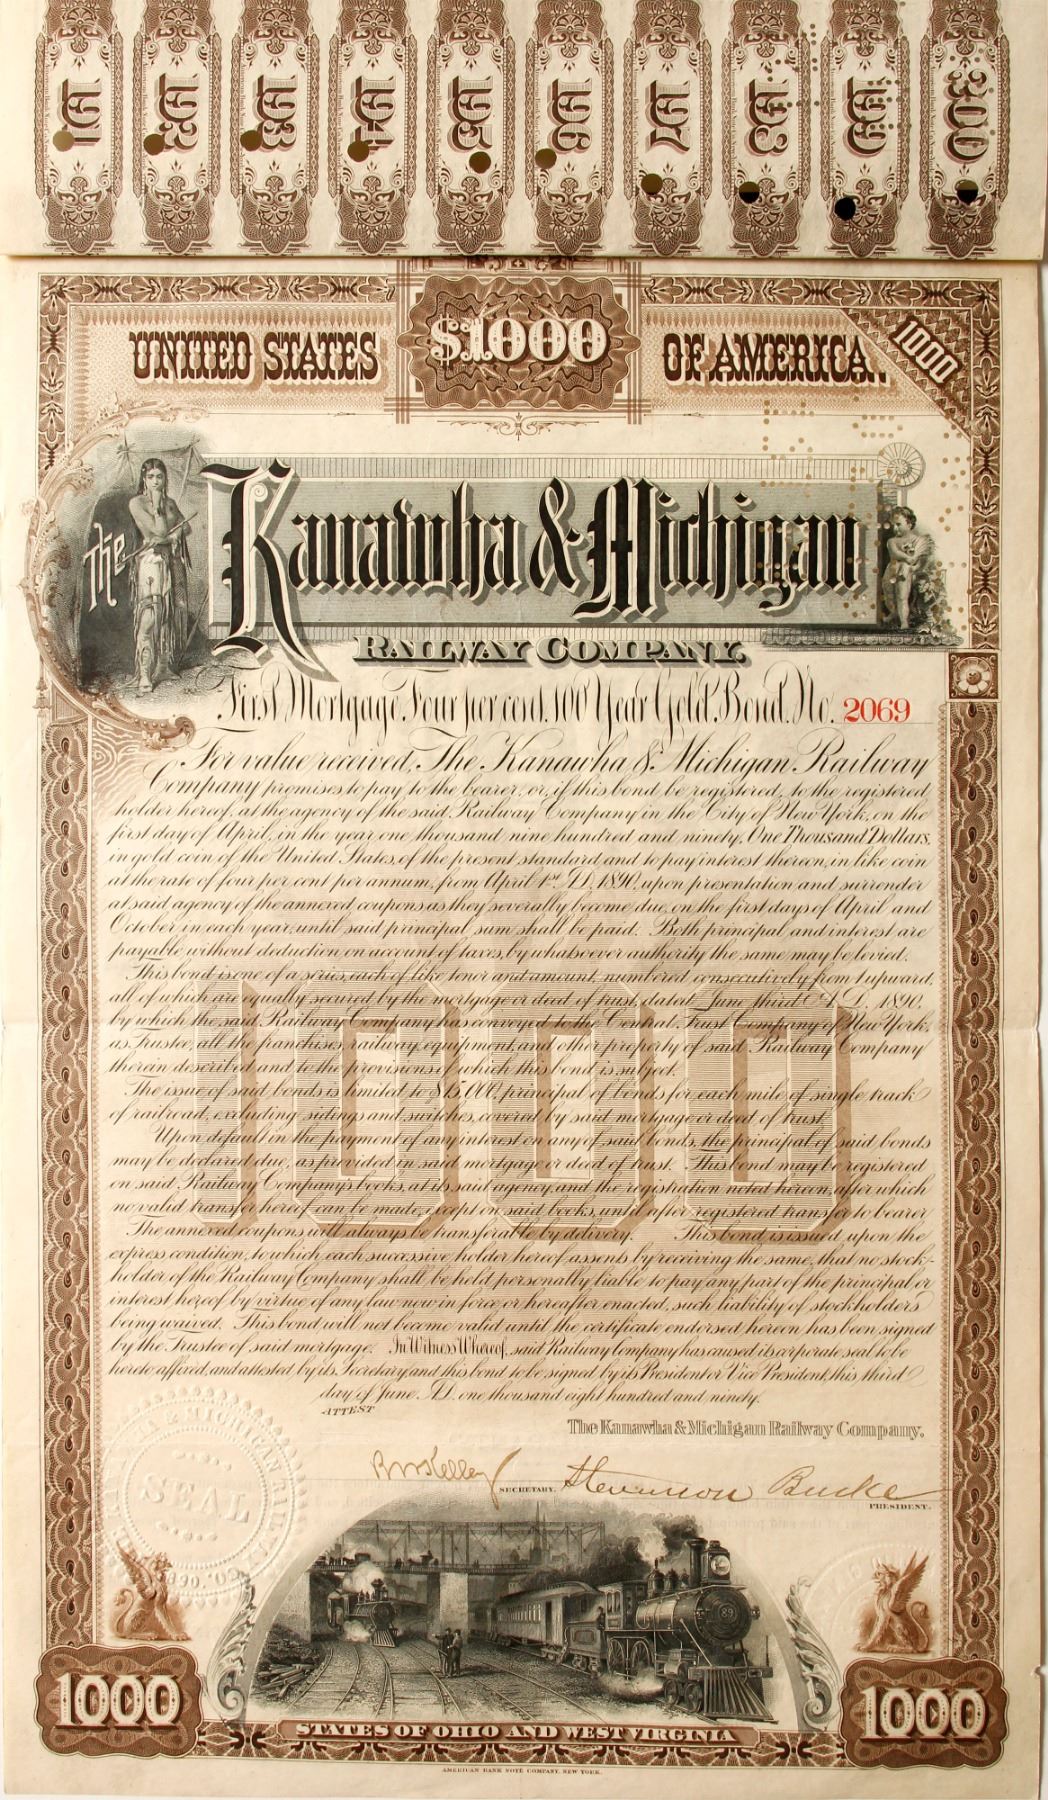 191 192 193 194 195 196 197 198 199 200
UNITED STATES $1000 OF AMERICA. 1000
The Kanawha & Michigan
RAILWAY COMPANY.
First Mortgage Four per cent. 100 Year Gold Bond. No. 2069
For value received, The Kanawha & Michigan Railway
Company promises to pay to the bearer, or, if this bond be registered, to the registered
holder hereof, at the agency of the said Railway Company in the City of New York, on the
first day of April, in the year one thousand nine hundred and ninety, One Thousand Dollars,
in gold coin of the United States, of the present standard and to pay interest thereon, in like coin
at the rate of four per cent per annum, from April 1st A.D. 1890, upon presentation and surrender
at said agency of the annexed coupons as they severally become due, on the first days of April and
October in each year, until said principal sum shall be paid. Both principal and interest are
payable without deduction on account of taxes, by whatsoever authority the same may be levied.
This bond is one of a series, each of like tenor and amount, numbered consecutively from 1 upward,
all of which are equally secured by the mortgage or deed of trust, dated June third A.D. 1890,
by which the said Railway Company has conveyed to the Central Trust Company of New York,
as Trustee, all the franchises, railway, equipment, and other property of said Railway Company
therein described and to the provisions of which this bond is subject.
The issue of said bonds is limited to $15,000, principal of bonds for each mile of single track
of railroad, excluding sidings and switches, covered by said mortgage or deed of trust.
Upon default in the payment of any interest on any of said bonds, the principal of said bonds
may be declared due, as provided in said mortgage or deed of trust. This bond may be registered
on said Railway Company's books, at its said agency, and the registration noted hereon, after which
no valid transfer hereof can be made, except on said books, until after registered transfer to bearer
The annexed coupons will always be transferable by delivery. This bond is issued upon the
express condition, to which each successive holder hereof assents by receiving the same, that no stock-
holder of the Railway Company shall be held personally liable to pay any part of the principal or
interest hereof by virtue of any law now in force or hereafter enacted, such liability of stockholders
being waived. This bond will not become valid until the certificate endorsed hereon has been signed
by the Trustee of said mortgage. In Witness Whereof, said Railway Company has caused its corporate seal to be
hereto affixed, and attested by its Secretary, and this bond to be signed by its President or Vice President, this third
day of June A.D. one thousand eight hundred and ninety.
ATTEST
The Kanawha & Michigan Railway Company.
SECRETARY. Stevenson Burke
PRESIDENT.
SEAL
1890.
89
1000 1000
STATES OF OHIO AND WEST VIRGINIA
AMERICAN BANK NOTE COMPANY, NEW YORK.